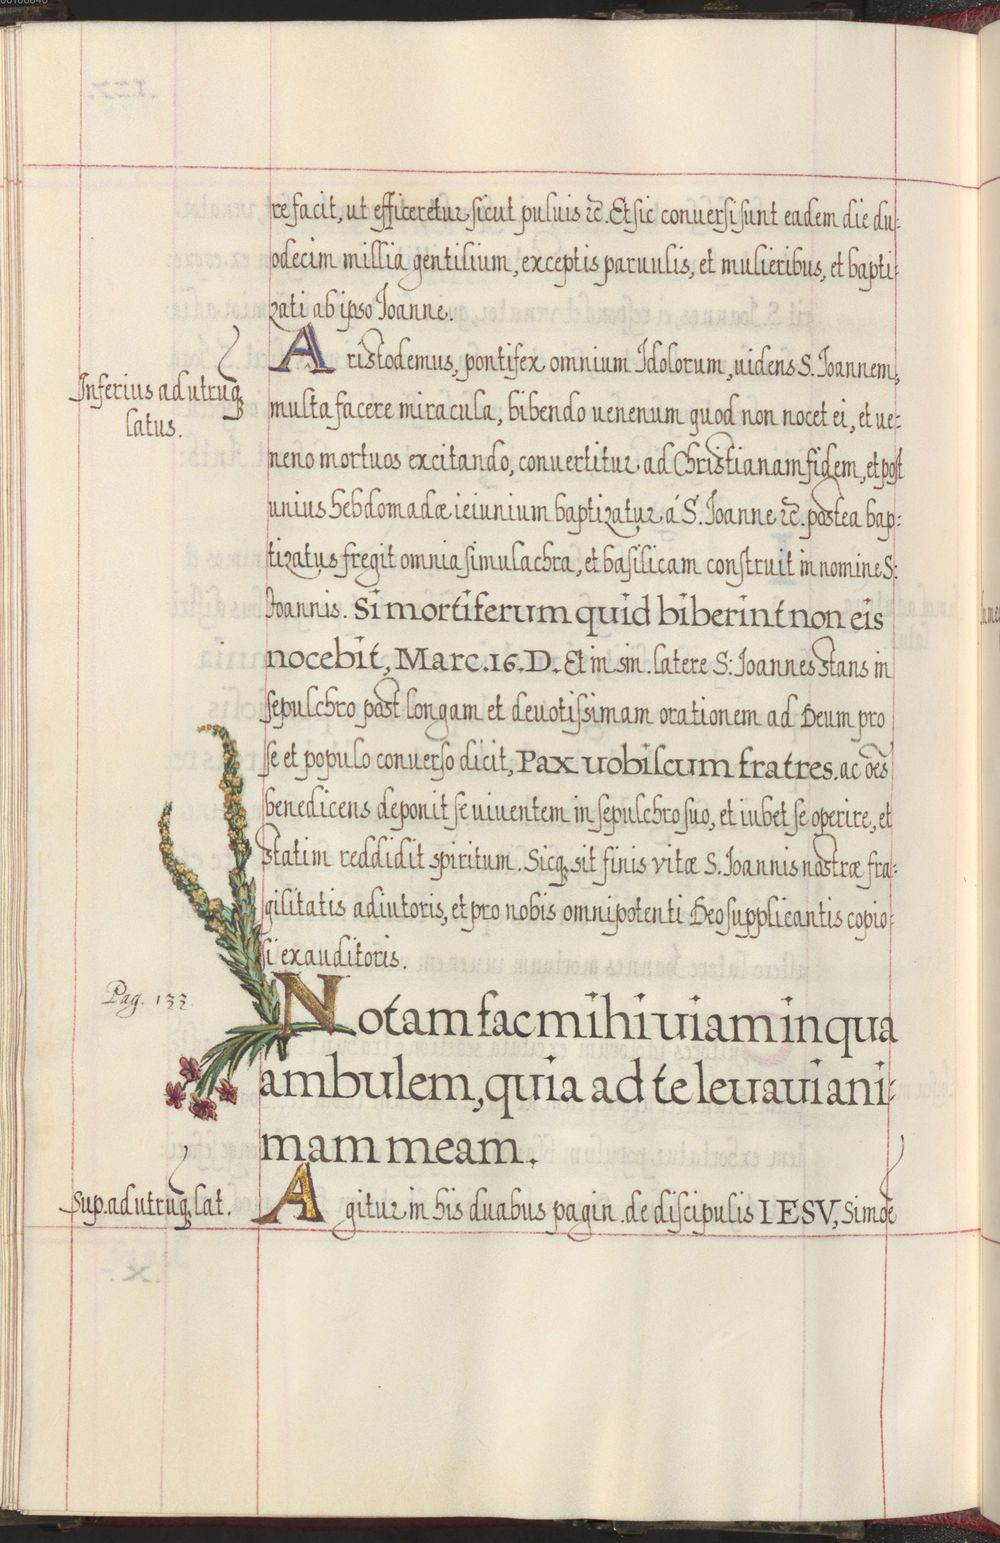 re facit, ut efficeretur sicut puluis &c̃. Et sic conuersi sunt eadem die du:
odecim millia gentilium, exceptis paruulis, et mulieribus, et bapti:
zati ab ipso Joanne.
Aristodemus, pontifex omnium Idolorum, uidens S. Joannem,
Inferius ad utrumq;
latus.
multa facere miracula, bibendo uenenum quod non nocet ei, et ue:
neno mortuos excitando, conuertitur ad Christianam fidem, et post
unius hebdomadæ ieiunium baptizatur á S. Joanne &c̃. postea bap:
tizatus fregit omnia simulachra, et basilicam construit in nomine S:
Joannis. Si mortiferum quid biberint non eis
nocebit, Marc. 16. D. Et in sin. latere S: Joannes stans in
sepulchro post longam et deuotissimam orationem ad Deum pro
se et populo conuerso dicit, Pax uobiscum fratres. ac oẽs
benedicens deponit se uiuentem in sepulchro suo, et iubet se operire, et
statim reddidit spiritum. Sicq; sit finis vitæ S. Joannis nostræ fra:
gilitatis adiutoris, et pro nobis omnipotenti Deo supplicantis copio:
si exauditoris.
Pag. 133.
Notam fac mihi uiam in qua
ambulem, quia ad te leuaui ani:
mam meam.
Sup. ad utrumq; lat.
Agitur in his duabus pagin. de discipulis IESV, Simõe